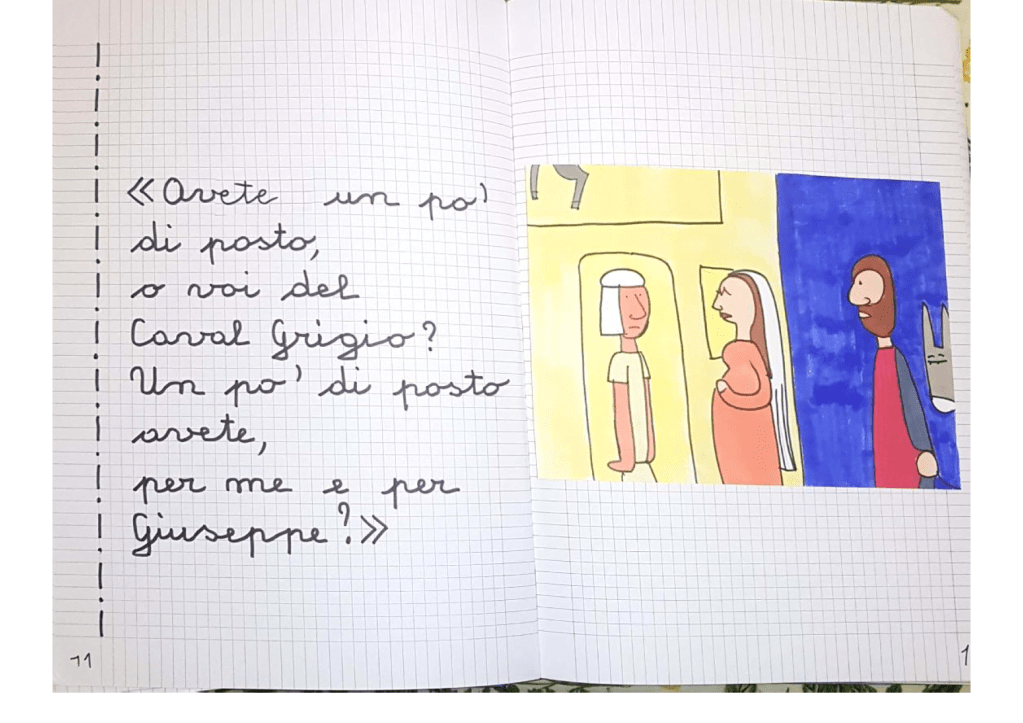 «Avete un po'
di posto,
o voi del
Caval Grigio?
Un po' di posto
avete,
per me e per
Giuseppe?»
11
1